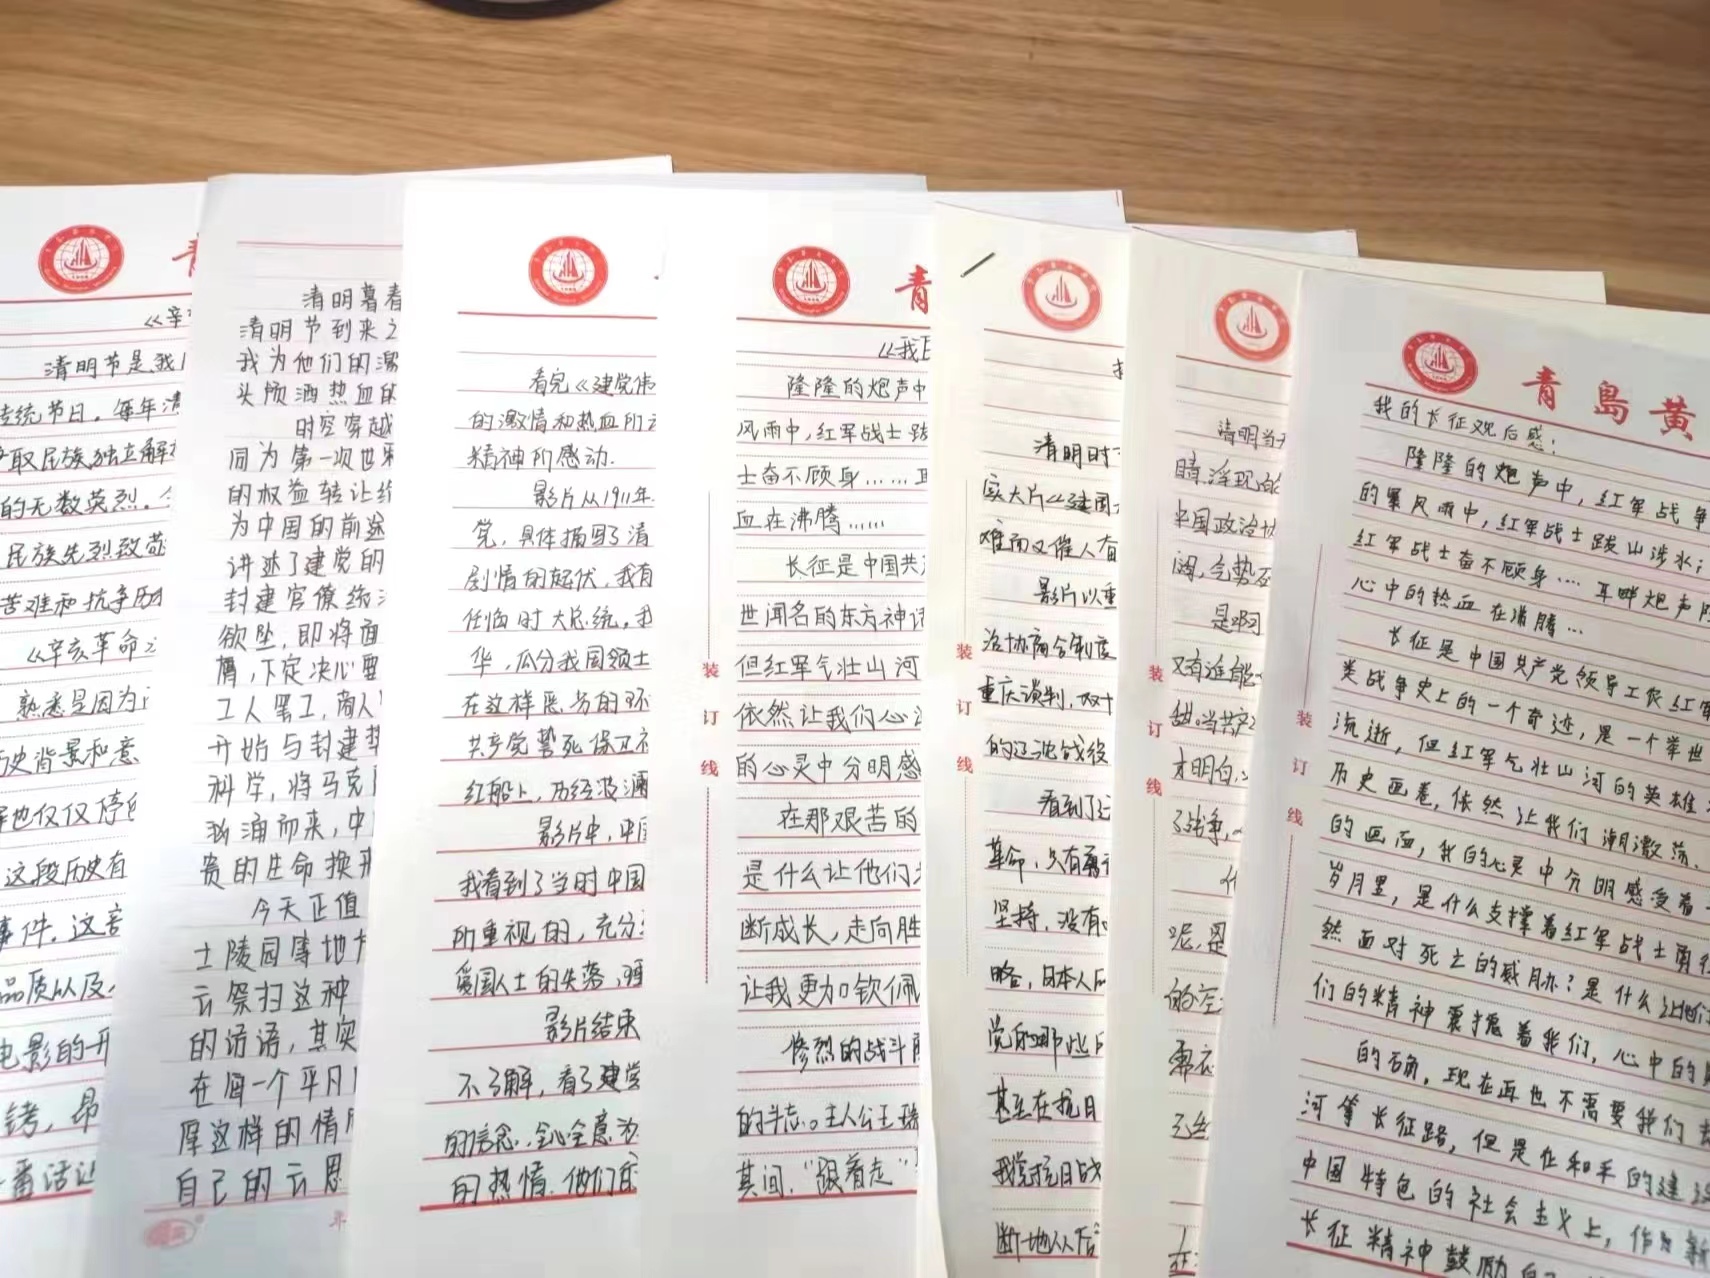 《辛
清明节是我
传统节日。每年清
取民族独立解
的无数英烈。
民族先烈致敬
苦难和抗争历
《辛亥革命
熟悉是因为
历史背景和意
这段历史有
事件。这
品质以及
电影的开
铐，昂
番话让
清明暮春
清明节到来之
我为他们的激
头倾洒热血的
时空穿越
同为第一次世界
的权益转让给
为中国的前途
讲述了建党的
封建官僚统
欲坠，即将面
膺，下定决心要
工人罢工，商人
开始与封建
科学，将马克
汹涌而来，中
贵的生命换
今天正值
士陵园等地
云祭扫这种
的话语，其实
在每一个平凡
厚这样的情
自己的云思
看完《建党伟
的激情和热血所
精神所感动.
影片从1911年
党，具体描写了清
剧情的起伏，我有
任临时大总统，
华，瓜分我国领土
在这样恶劣的环
共产党誓死保卫
红船上，历经波澜
影片中，中国
我看到了当时中国
所重视的，充分
爱国人士的失落，
影片结束
不了解，看了建党
的信念，全心全意为
的热情，他们
青
《我
隆隆的炮声中
风雨中，红军战士跋
士奋不顾身……耳
血在沸腾……
长征是中国共
世闻名的东方神话
但红军气壮山河
依然让我们心
的心灵中分明感
在那艰苦的
是什么让他们
断成长，走向胜
让我更加钦佩
惨烈的战斗
的斗志。主人公王瑞
其间，“跟着走”
装
订
线
清明时
实大片《建国
难而又催人奋
影片以重
治协商会制度
重庆谈判，双十
的辽沈战役
看到了
革命，只有勇
坚持，没有
略，日本人
党的那些
甚至在抗日
我党抗日战
断地从
装
订
线
清明当
睛，浮现的
中国政治协
阔，气势
是啊
又有谁能
甜。当共产
才明白
了战争，
呢，是
的空
装
订
线
青島黄
我的长征观后感：
隆隆的炮声中，红军战争
的暴风雨中，红军战士跋山涉水
红军战士奋不顾身……耳畔炮声隆
心中的热血在沸腾…
长征是中国共产党领导工农红军
类战争史上的一个奇迹，是一个举世
流逝，但红军气壮山河的英雄
历史画卷，依然让我们潮激荡、
的画面，我的心灵中分明感受着
岁月里，是什么支撑着红军战士勇往
然面对死亡的威胁？是什么让他们
们的精神震撼着我们，心中的
的确，现在再也不需要我们去
河等长征路，但是在和平的建设
中国特色的社会主义上，作为新
长征精神鼓励自
装
订
线